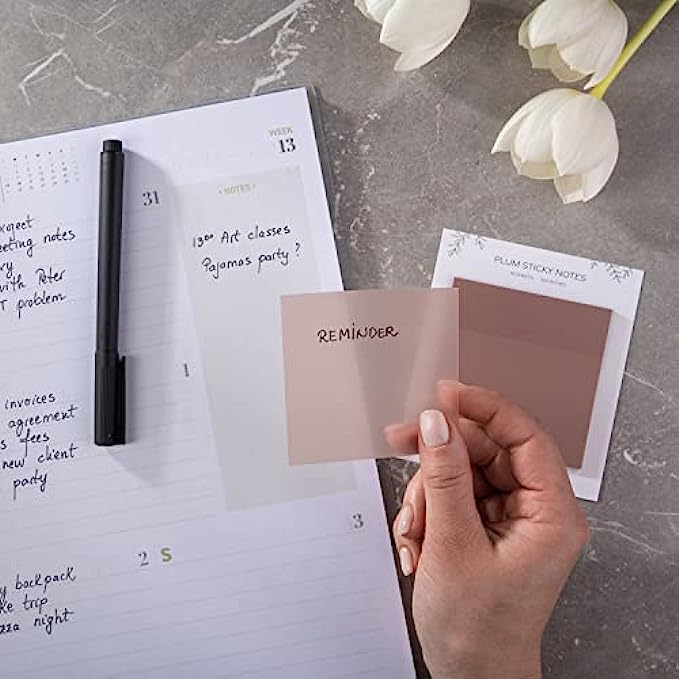 WEEK
13
31
• NOTES •
13⁰⁰ Art classes
Pajamas party ?
project
meeting notes
with Peter
problem
REMINDER
PLUM STICKY NOTES
1
invoices
agreement
fees
new client
party
2 S
3
backpack
trip
night